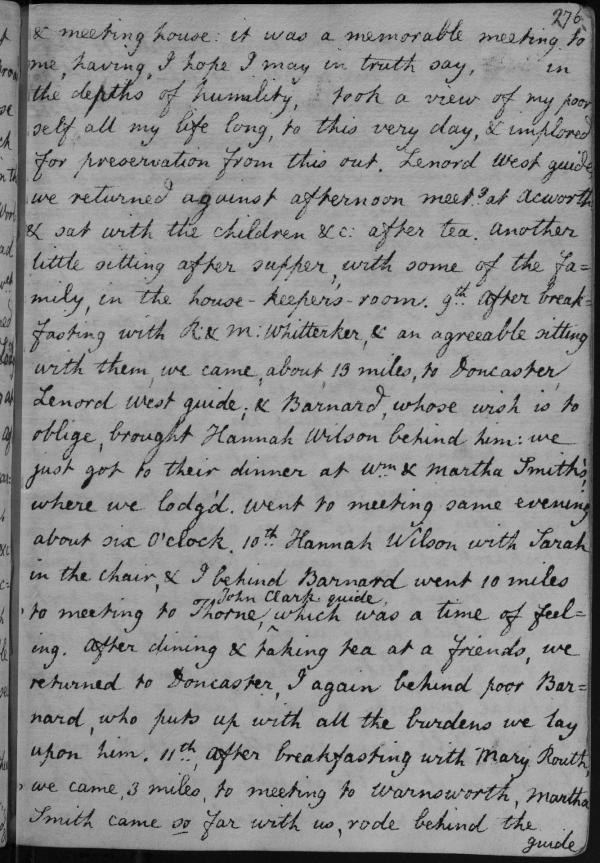 276
& meeting house: it was a memorable meeting to
me, having, I hope I may in truth say, in
the depths of humility, took a view of my poor
self all my life long, to this very day, & implored
for preservation from this out. Lenord West guide,
we returned against afternoon meet.g at Acworth
& sat with the children &c: after tea. another
little sitting after supper, with some of the fa=
mily, in the house-keepers-room. 9th. after break=
fasting with R: & M: Whitterker, & an agreeable sitting
with them, we came, about 13 miles, to Doncaster,
Lenord West guide; & Barnard, whose wish is to
oblige, brought Hannah Wilson behind him: we
just got to their dinner at Wm. & Martha Smith's,
where we lodg'd. went to meeting same evening
about six O'clock. 10th. Hannah Wilson with Sarah
in the chair, & I behind Barnard went 10 miles
John Clark guide,
to meeting to Thorne, ^ which was a time of feel=
ing. after dining & taking tea at a friends, we
returned to Doncaster, I again behind poor Bar=
nard, who puts up with all the burdens we lay
upon him. 11th. after breakfasting with Mary Routh,
we came, 3 miles, to meeting to Warnsworth, Martha
Smith came so far with us, rode behind the
guide